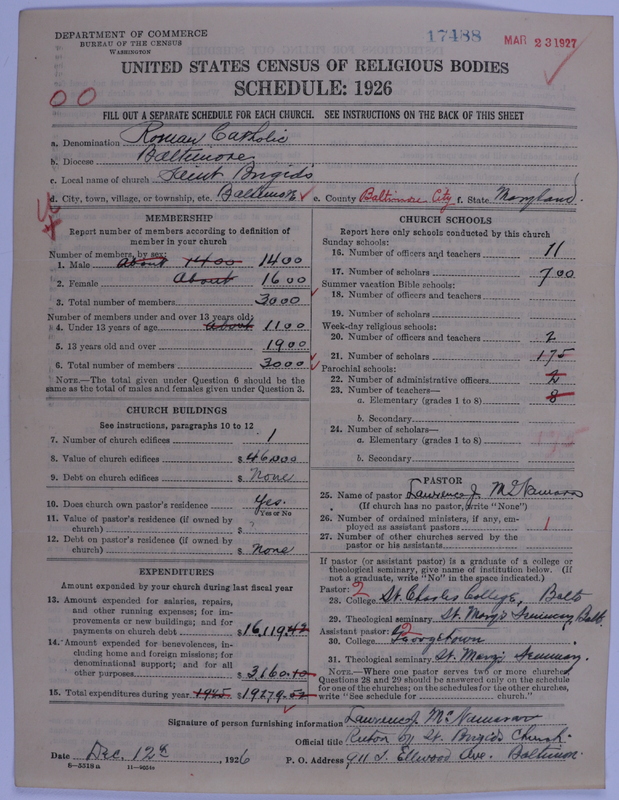 DEPARTMENT OF COMMERCE
BUREAU OF THE CENSUS
WASHINGTON
17488
MAR 23 1927
UNITED STATES CENSUS OF RELIGIOUS BODIES
SCHEDULE: 1926
00
FILL OUT A SEPARATE SCHEDULE FOR EACH CHURCH. SEE INSTRUCTIONS ON THE BACK OF THIS SHEET
a. Denomination Roman Catholic
b. Diocese Baltimore
c. Local name of church Saint Brigid's
d. City, town, village, or township, etc. Baltimore e. County Baltimore City f. State Maryland.
MEMBERSHIP
Report number of members according to definition of
member in your church
Number of members, by sex:
1. Male About 1400 1400
2. Female About 1600
3. Total number of members 3000
Number of members under and over 13 years old:
4. Under 13 years of age About 1100
5. 13 years old and over 1900
6. Total number of members 3000
NOTE.—The total given under Question 6 should be the
same as the total of males and females given under Question 3.
CHURCH BUILDINGS
See instructions, paragraphs 10 to 12
7. Number of church edifices 1
8. Value of church edifices $ 46000
9. Debt on church edifices $ None
10. Does church own pastor's residence Yes.
Yes or No
11. Value of pastor's residence (if owned by
church) $ ?
12. Debt on pastor's residence (if owned by
church) $ None
EXPENDITURES
Amount expended by your church during last fiscal year
13. Amount expended for salaries, repairs,
and other running expenses; for im-
provements or new buildings; and for
payments on church debt $ 16,119.42
14. Amount expended for benevolences, in-
cluding home and foreign missions; for
denominational support; and for all
other purposes $ 3160.10
15. Total expenditures during year 1925 $ 19279.52
CHURCH SCHOOLS
Report here only schools conducted by this church
Sunday schools:
16. Number of officers and teachers 11
17. Number of scholars 700
Summer vacation Bible schools:
18. Number of officers and teachers
19. Number of scholars
Week-day religious schools:
20. Number of officers and teachers 2
21. Number of scholars 175
Parochial schools:
22. Number of administrative officers 2
23. Number of teachers—
a. Elementary (grades 1 to 8) 8
b. Secondary
24. Number of scholars—
a. Elementary (grades 1 to 8) 175
b. Secondary
PASTOR
25. Name of pastor Lawrence J. McNamara
(If church has no pastor, write "None")
26. Number of ordained ministers, if any, em-
ployed as assistant pastors 1
27. Number of other churches served by the
pastor or his assistants
If pastor (or assistant pastor) is a graduate of a college or
theological seminary, give name of institution below. (If
not a graduate, write "No" in the space indicated.)
Pastor: 2
28. College St. Charles College, Balto
29. Theological seminary St. Mary's Seminary Balt.
Assistant pastor: 2
30. College Georgetown
31. Theological seminary St. Mary's Seminary.
NOTE.—Where one pastor serves two or more churches,
Questions 28 and 29 should be answered only on the schedule
for one of the churches; on the schedules for the other churches,
write "See schedule for church."
Signature of person furnishing information Lawrence J. McNamara
Official title Rector of St. Brigid's Church.
Date Dec. 12th, 1926 P. O. Address 911 S. Ellwood Ave. Baltimore.
6—5318a 11—9054a